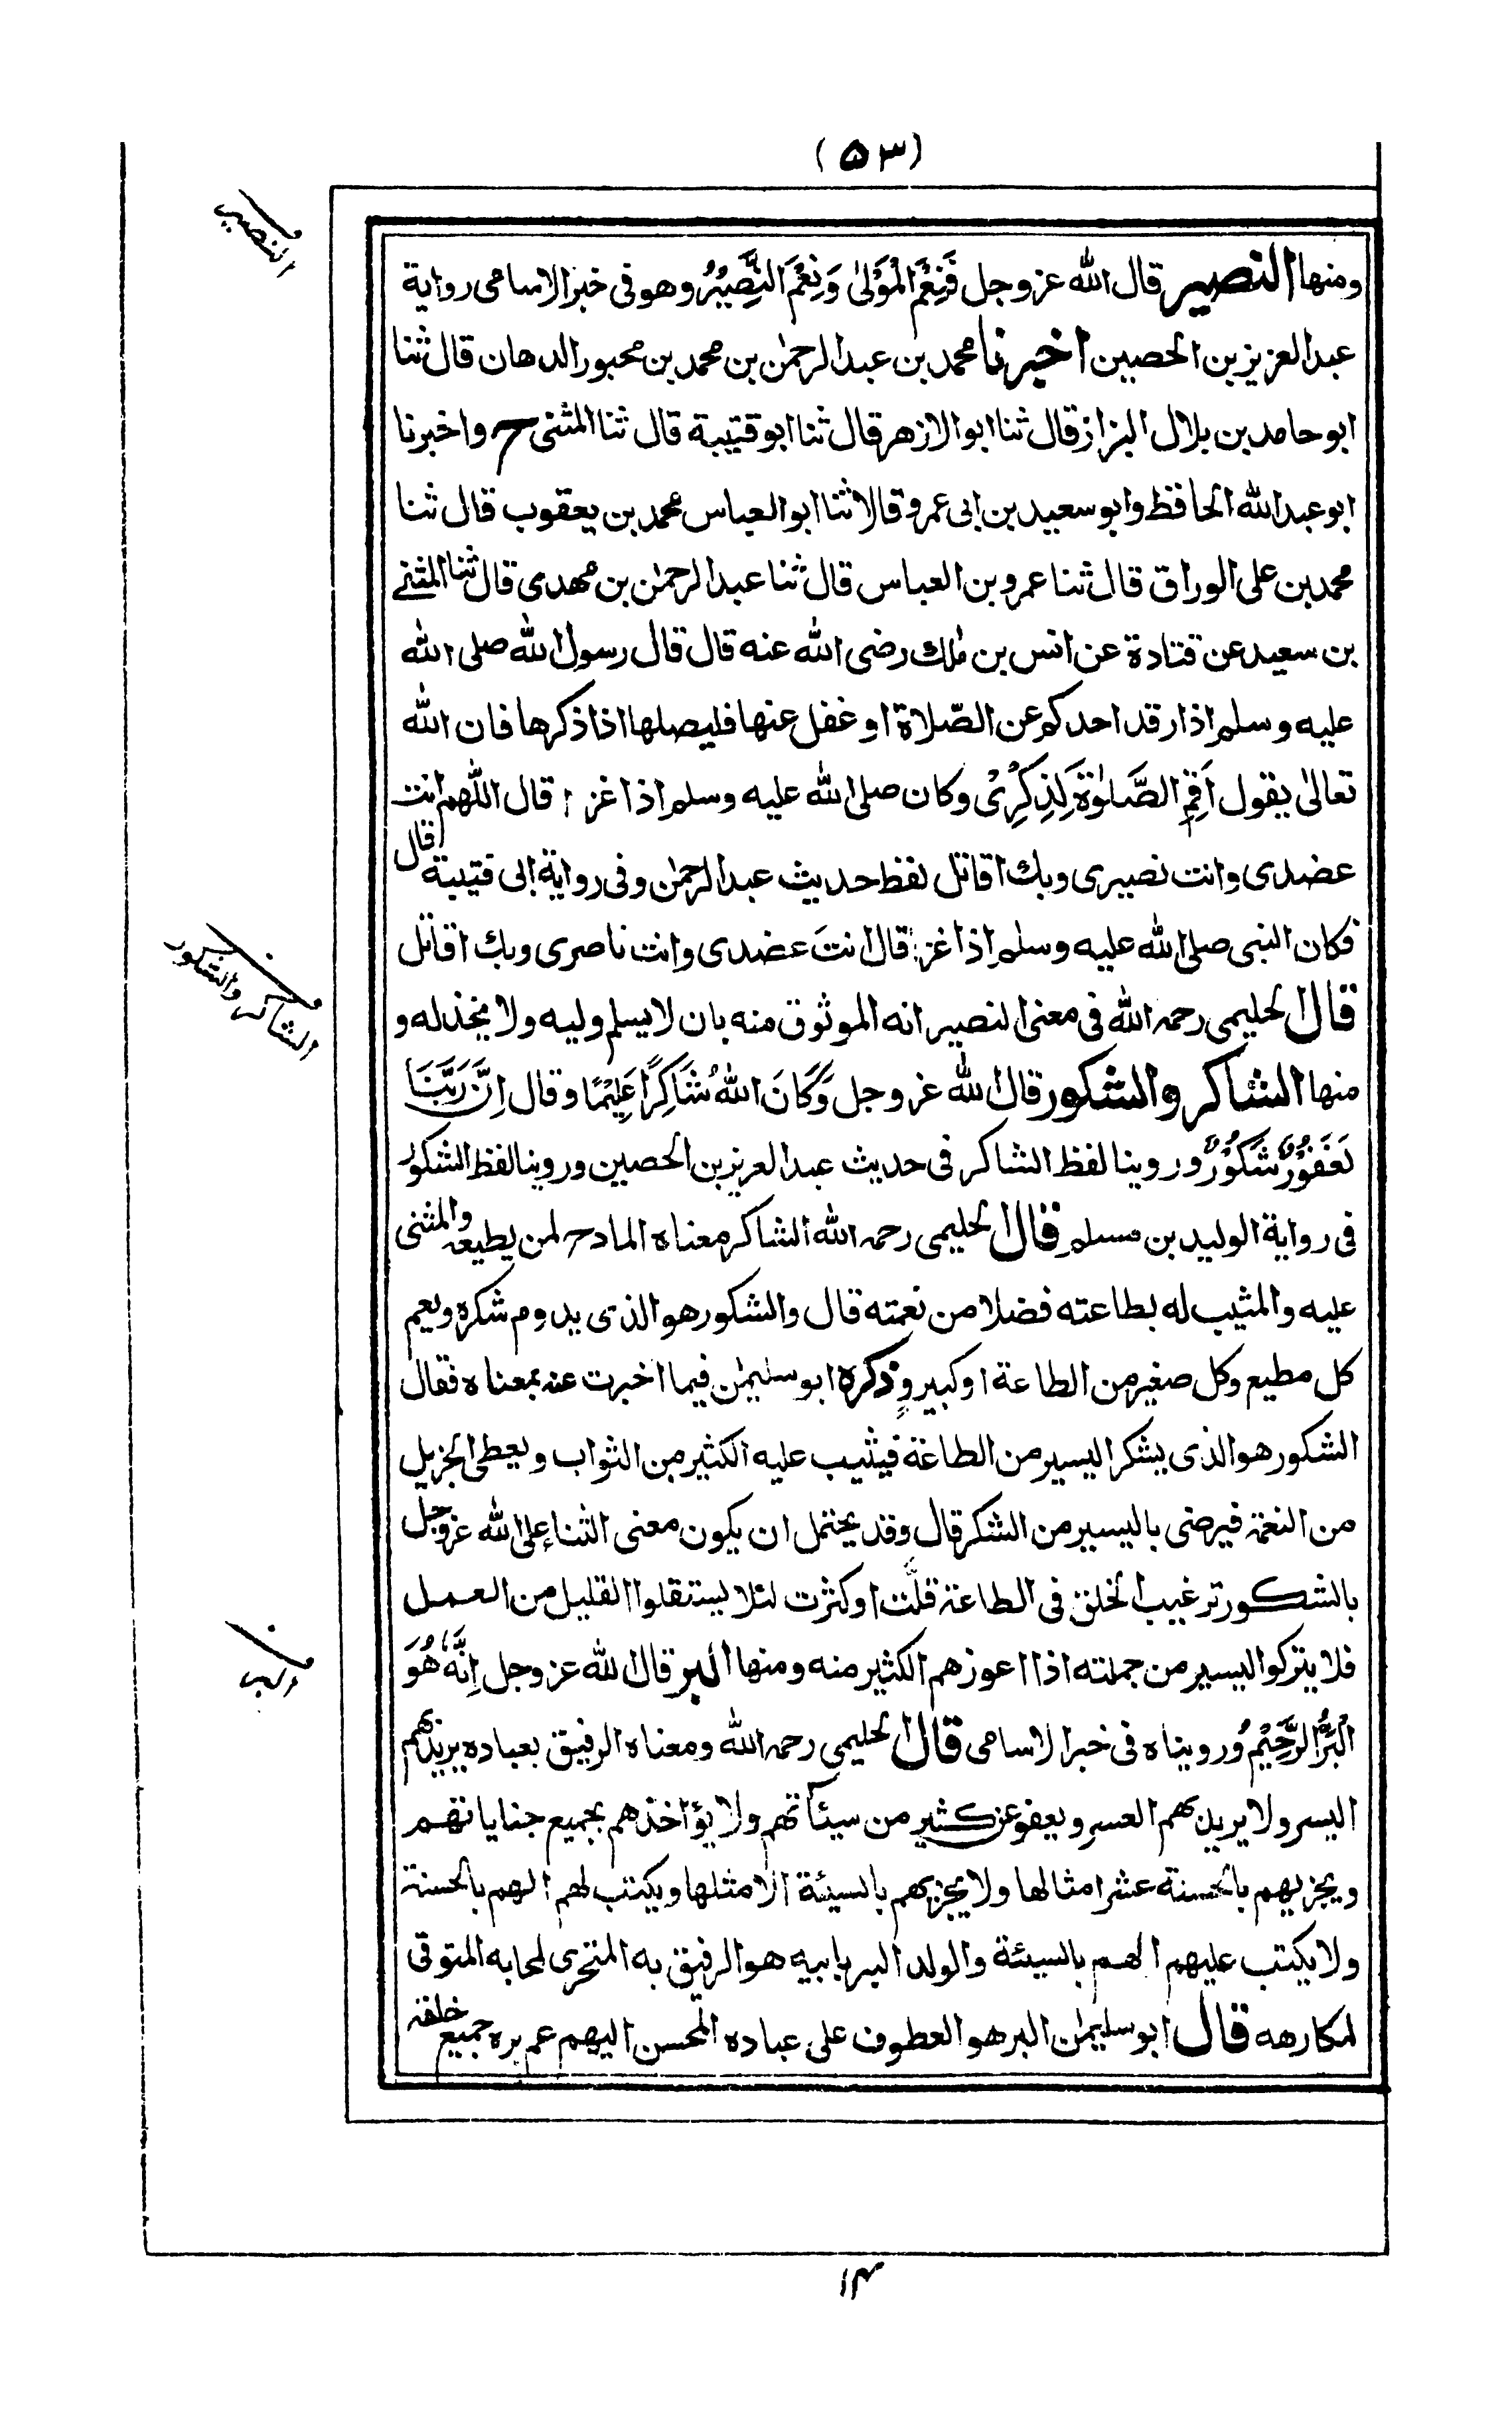 (۵۳)
النصير
ومنها النصير قال الله عز وجل فَنِعْمَ الْمَوْلىٰ وَنِعْمَ النَّصِيْرُ وهو فى خبر الاسامى رواية
عبد العزيز بن الحصين اخبرنا محمد بن عبد الرحمٰن بن محمد بن محبور الدهان قال ثنا
ابو حامد بن بلال البزاز قال ثنا ابو الازهر قال ثنا ابو قتيبة قال ثنا المثنى ح واخبرنا
ابو عبد الله الحافظ وابو سعيد بن ابى عمرو قالا ثنا ابو العباس محمد بن يعقوب قال ثنا
محمد بن على الوراق قال ثنا عمرو بن العباس قال ثنا عبد الرحمٰن بن مهدى قال ثنا المثنے
بن سعيد عن قتادة عن انس بن مٰلك رضى الله عنه قال قال رسول الله صلى الله
عليه وسلم اذا رقد احدكم عن الصّلاة او غفل عنها فليصلها اذا ذكرها فان الله
تعالىٰ يقول اَقِمِ الصَّلوٰةَ لِذِكْرِىْ وكان صلى الله عليه وسلم اذا غزا قال اللهم انت
عضدى وانت نصيرى وبك اقاتل لفظ حديث عبد الرحمٰن وفى رواية ابى قتيبة قال
فكان النبى صلى الله عليه وسلم اذا غزا قال انتَ عضدى وانت ناصرى وبك اقاتل
الشاكر والشكور
قال الحليمى رحمه الله فى معنى النصير انه الموثوق منه بان لا يسلم وليه ولا يخذله و
منها الشاكر والشكور قال الله عز وجل وَكَانَ اللهُ شَاكِرًا عَلِيْمًا وقال اِنَّ رَبَّنَا
لَغَفُوْرٌ شَكُوْرٌ وروينا لفظ الشاكر فى حديث عبد العزيز بن الحصين وروينا لفظ الشكور
فى رواية الوليد بن مسلم قال الحليمى رحمه الله الشاكر معناه المادح لمن يطيعه والمثنى
عليه والمثيب له بطاعته فضلا من نعمته قال والشكور هو الذى يدوم شكره ويعم
كل مطيع وكل صغير من الطاعة او كبير وذكره ابو سليمٰن فيما اخبرت عنه بمعناه فقال
الشكور هو الذى يشكر اليسير من الطاعة فيثيب عليه الكثير من الثواب ويعطى الجزيل
من النعمة فيرضى باليسير من الشكر قال وقد يحتمل ان يكون معنى الثناء على الله عز وجل
بالشكور ترغيب الخلق فى الطاعة قلّت او كثرت لئلا يستقلوا القليل من العمل
البر
فلا يتركوا اليسير من جملته اذا اعوزهم الكثير منه ومنها البر قال الله عز وجل اِنَّهٗ هُوَ
الْبَرُّ الرَّحِيْمُ ورويناه فى خبر الاسامى قال الحليمى رحمه الله ومعناه الرفيق بعباده يريد بهم
اليسر ولا يريد بهم العسر ويعفو عن كثير من سيئاتهم ولا يؤاخذهم بجميع جناياتهم
ويجزيهم بالحسنة عشر امثالها ولا يجزيهم بالسيئة الا مثلها ويكتب لهم الهم بالحسنة
ولا يكتب عليهم الهم بالسيئة والولد البر بابيه هو الرفيق به المتحرى لمحابه المتوقى
لمكارهه قال ابو سليمٰن البر هو العطوف على عباده المحسن اليهم عم بره جميع خلقه
۱۴